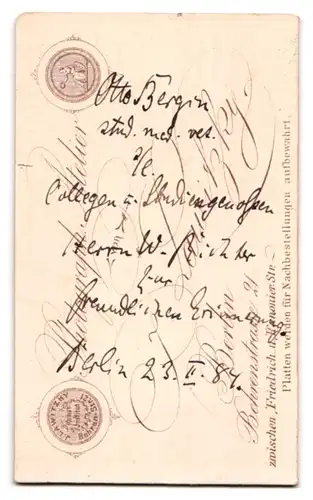 Otto Bergin
stud. med. vet.
s/l.
Collegen u. Studiengenossen
Herrn W. Richter
zur
freundlichen Erinnerung.
Berlin 23. II. 84.
Berlin
Behrenstrasse 21
zwischen Friedrich u. Kanonier-Str.
Platten werden für Nachbestellungen aufbewahrt.